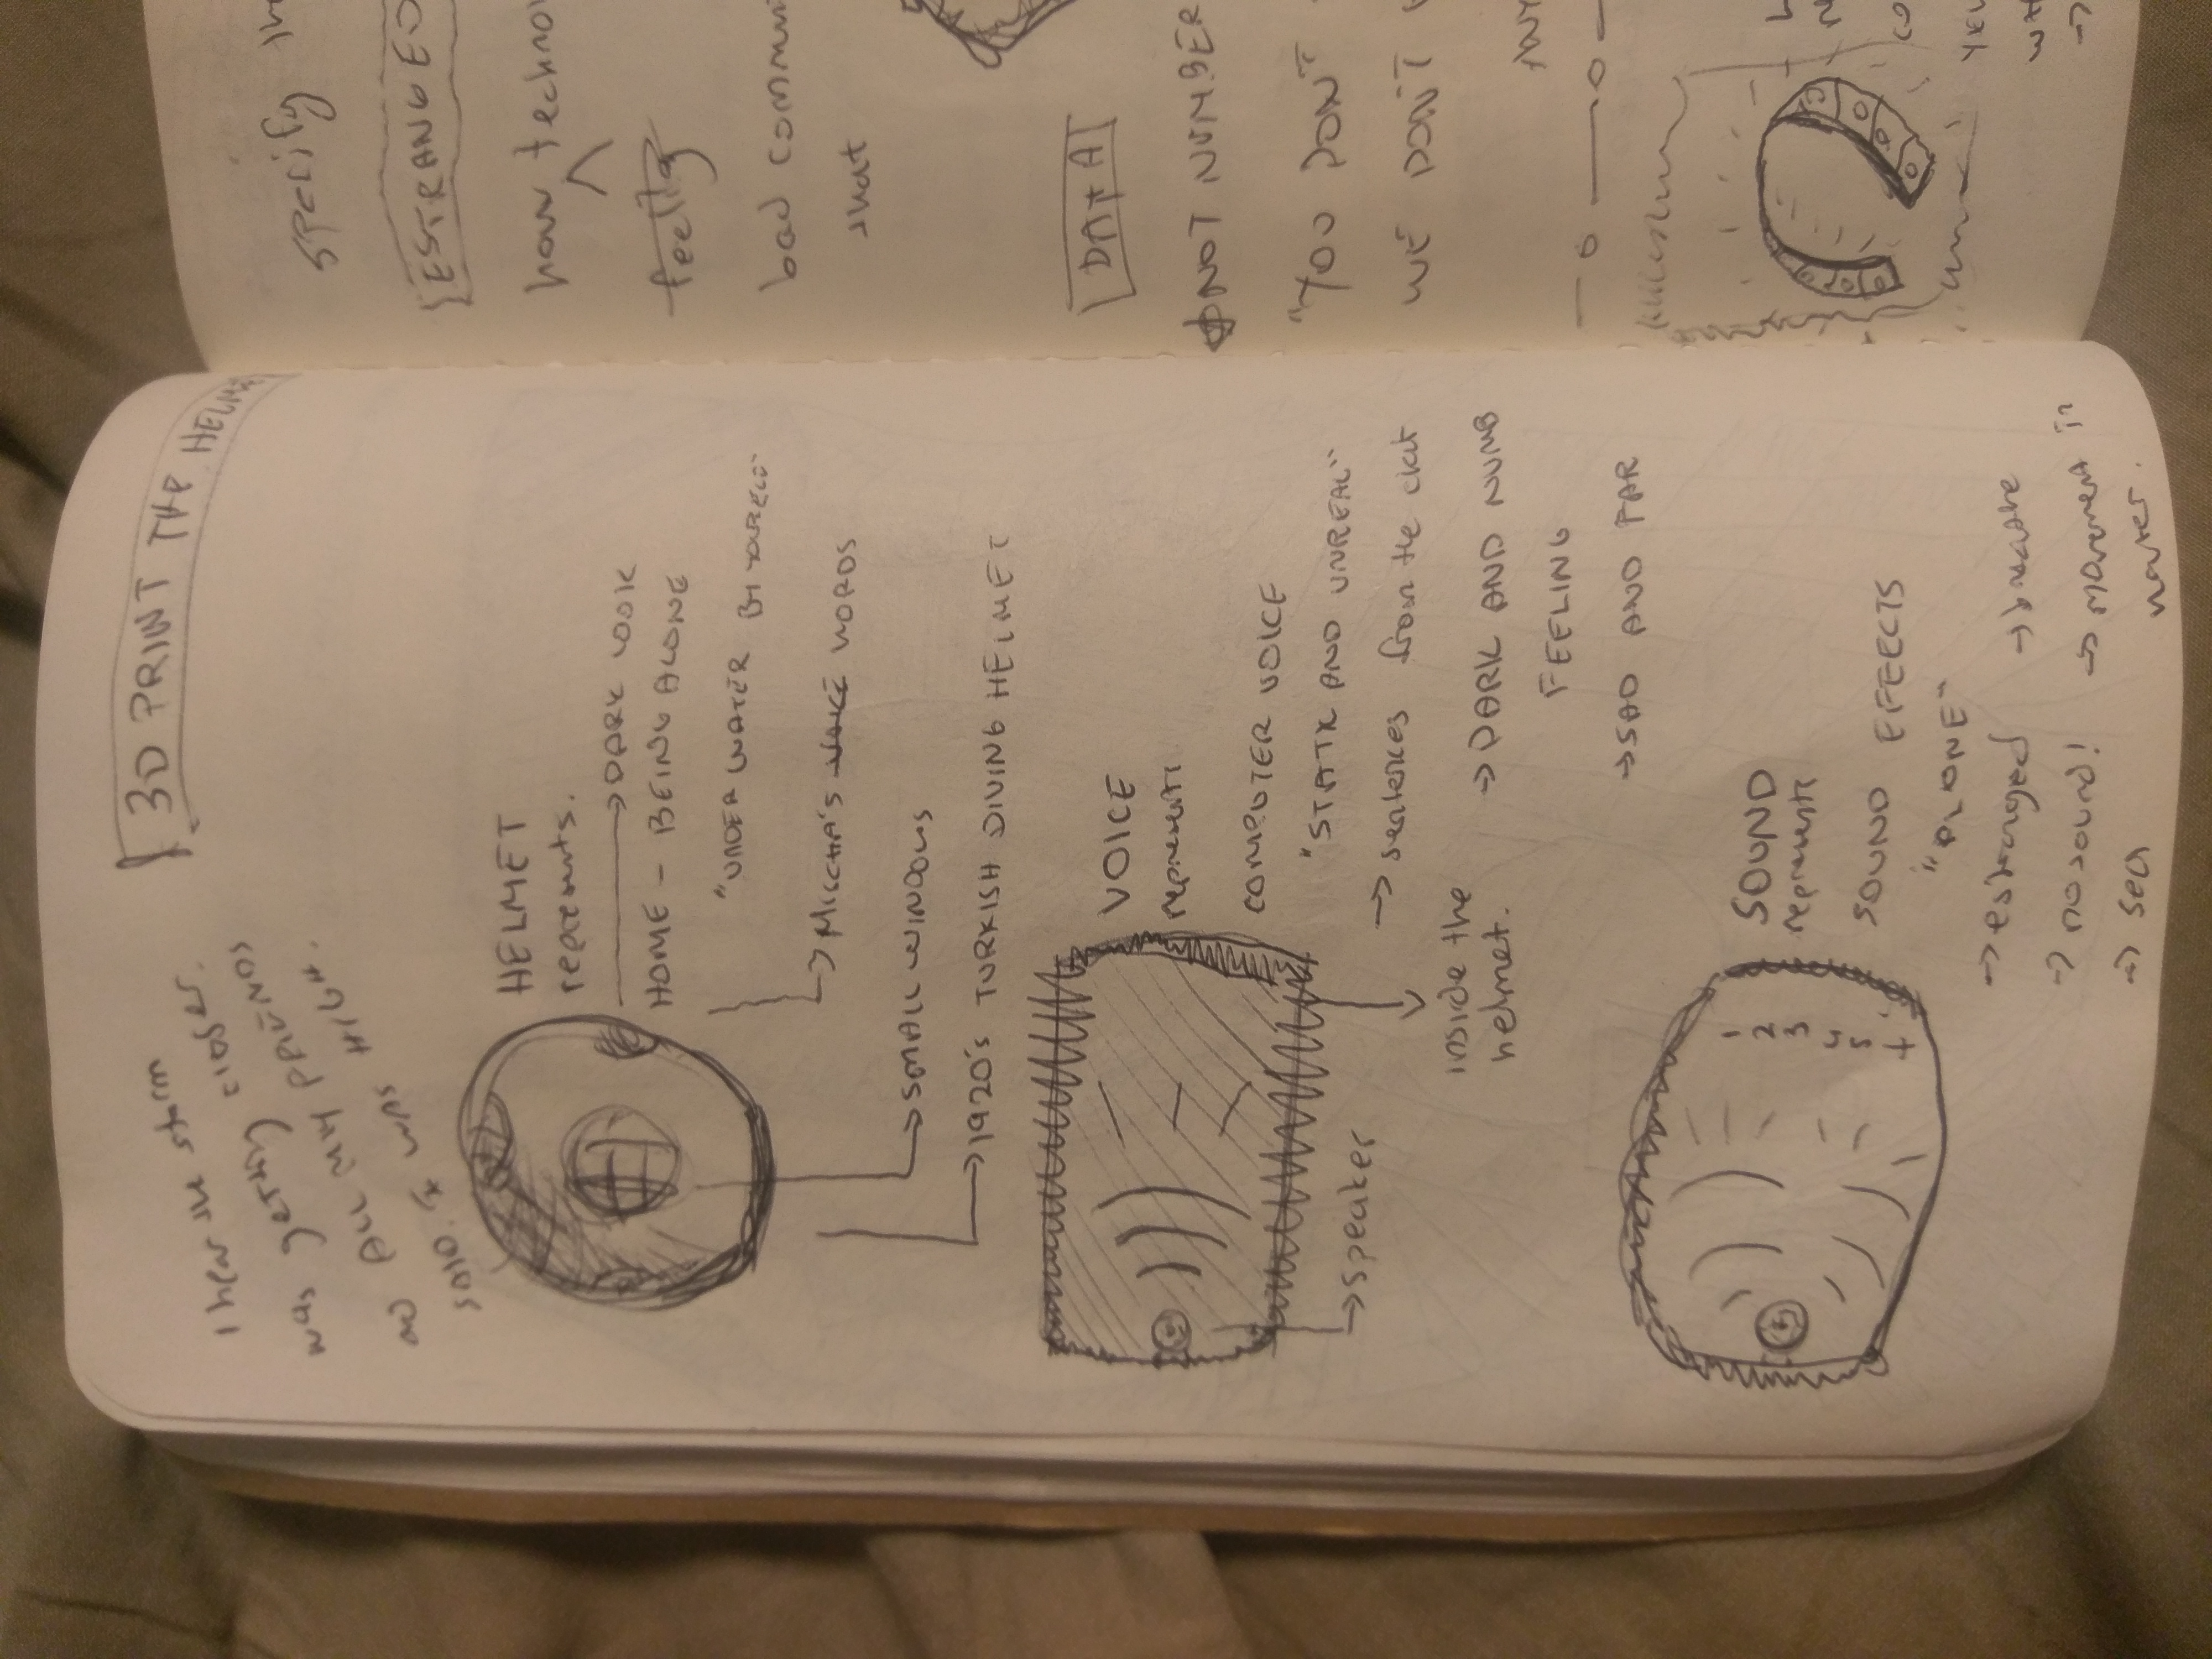 3D PRINT THE HELMET
I hear the storm
was getting closer.
HELMET
represents.
→ DARK LOOK
HOME - BEING ALONE
"UNDER WATER BY YOURSELF"
→ MISCHA'S WORDS
→ SMALL WINDOWS
→ 1920's TURKISH DIVING HELMET
VOICE
represents
COMPUTER VOICE
"STATIC AND UNREAL"
→ sentences from the chat
→ DARK AND NUMB
FEELING
→ SAD AND FAR
inside the
helmet.
→ speaker
SOUND
represents
SOUND EFFECTS
"ALONE"
→ estranged
→ no sound!
→ sea
→ breathe
→ movement in
water.
1
2
3
4
5
+
specify the
ESTRANGED
how techno
feeling
bad commun
what
DATA
NOT NUMBER
"YOU DON'T
WE DON'T